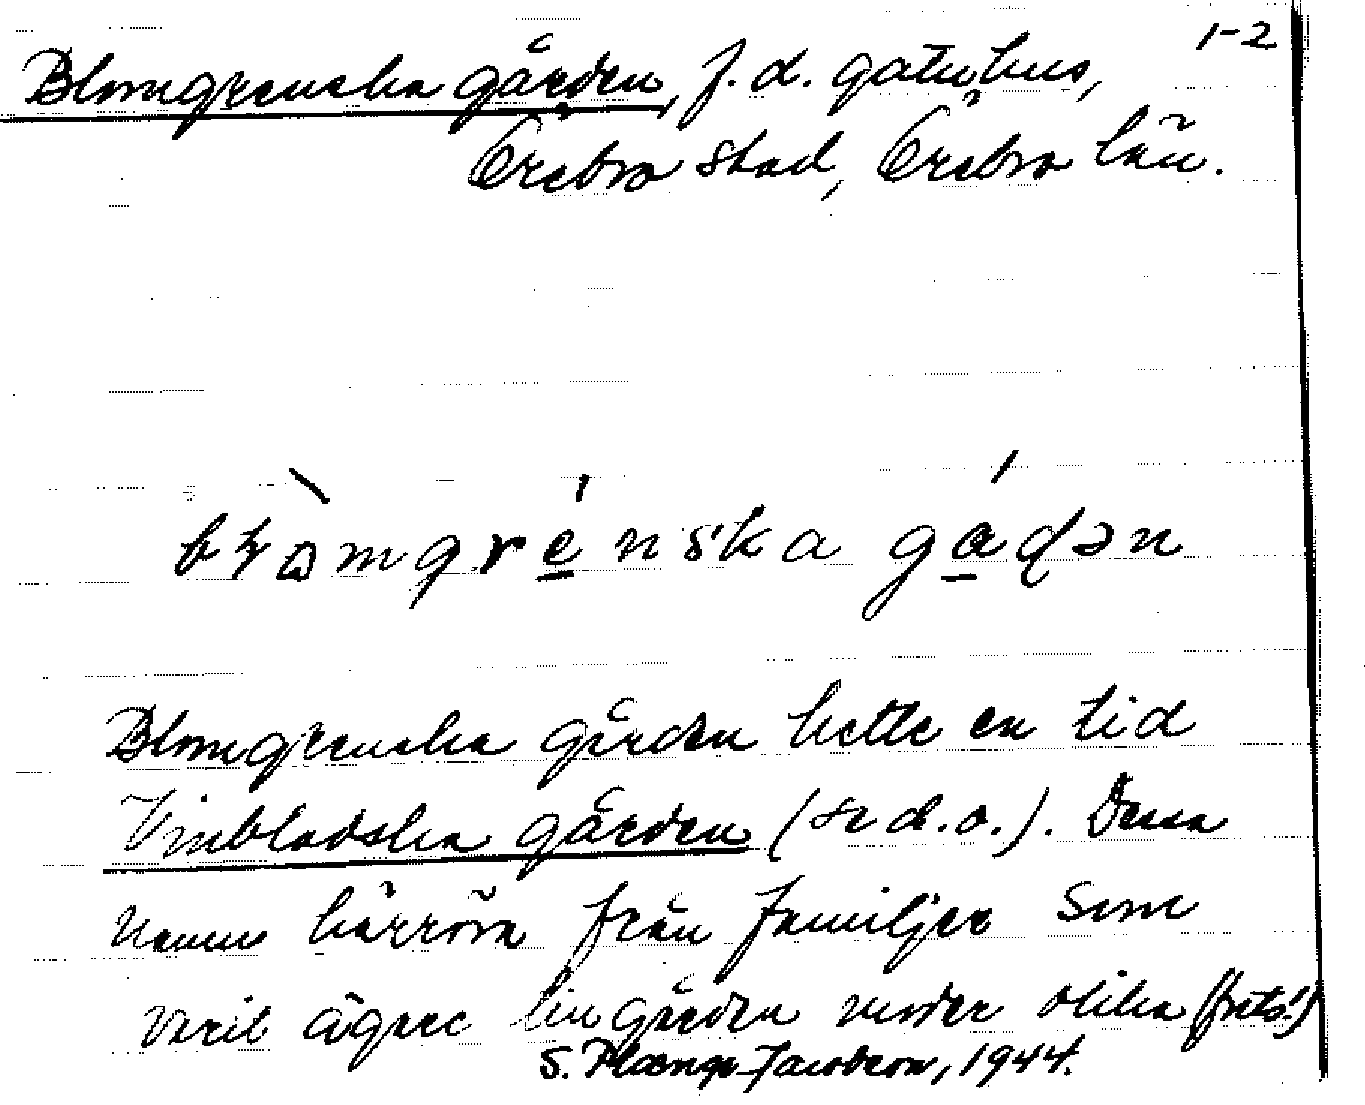 1-2
Blomgrenska gården, f.d. gatuhus,
Örebro stad, Örebro län.
Blomgrenska gården hette en tid
Vinbladska gården (se d.o.). Dessa
namn härröra från familjer som
varit ägare till gården under olika (forts.)
S. Jacobson, 1944.